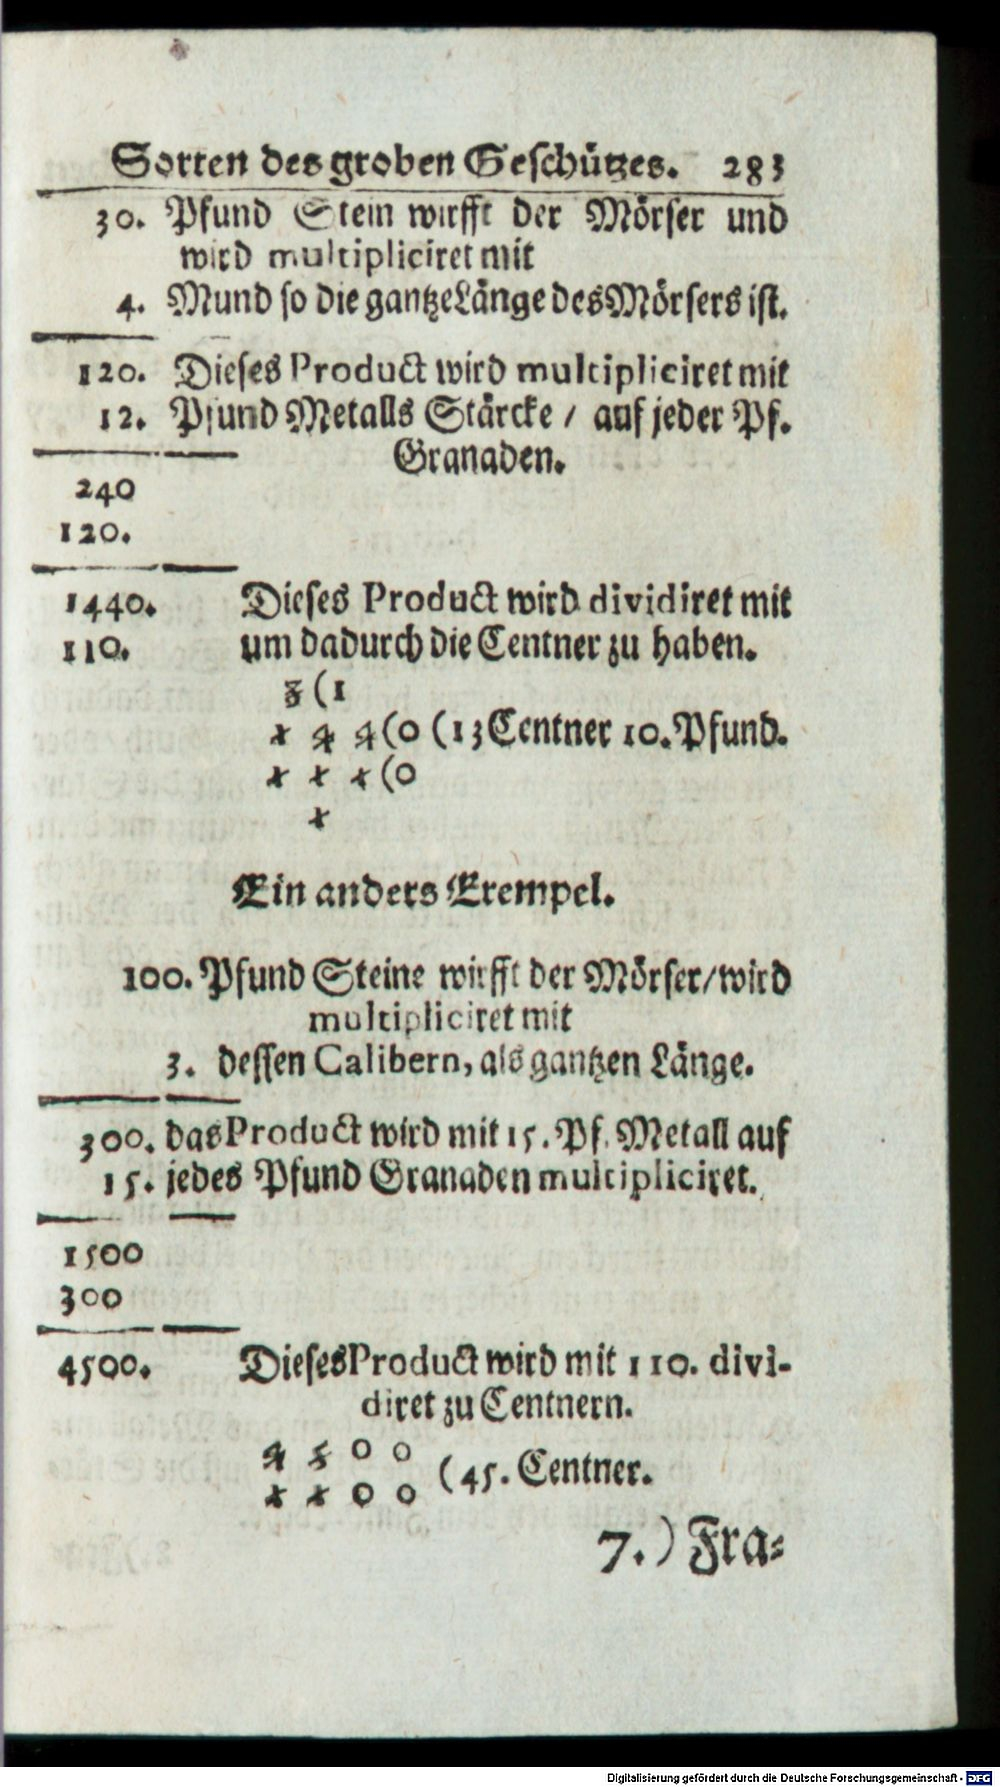 Sorten des groben Geschützes. 283
30. Pfund Stein wirfft der Mörser und
wird multipliciret mit
4. Mund so die gantze Länge des Mörsers ist.
120. Dieses Product wird multipliciret mit
12. Pfund Metalls Stärcke / auf jeder Pf.
Granaden.
240
120.
1440. Dieses Product wird dividiret mit
110. um dadurch die Centner zu haben.
3 (1
1 4 4 (0 (13 Centner 10. Pfund.
1 1 1 (0
1
Ein anders Exempel.
100. Pfund Steine wirfft der Mörser / wird
multipliciret mit
3. dessen Calibern, als gantzen Länge.
300. das Product wird mit 15. Pf. Metall auf
15. jedes Pfund Granaden multipliciret.
1500
300
4500. Dieses Product wird mit 110. divi-
diret zu Centnern.
4 5 0 0
(45. Centner.
1 1 0 0
7.) Fra-
Digitalisierung gefördert durch die Deutsche Forschungsgemeinschaft - DFG